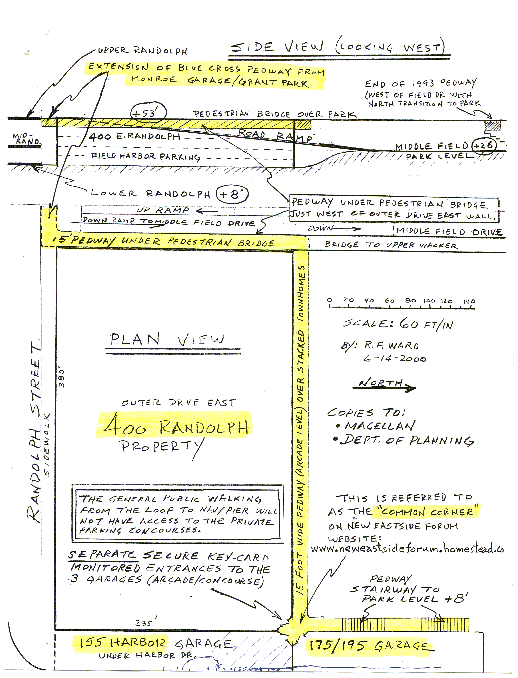 SIDE VIEW (LOOKING WEST)
UPPER RANDOLPH
EXTENSION OF BLUE CROSS PEDWAY FROM
MONROE GARAGE/GRANT PARK
END OF 1993 PEDWAY
(WEST OF FIELD DR. WITH
NORTH TRANSITION TO PARK
+53'
PEDESTRIAN BRIDGE OVER PARK
MID-
RAND.
400 E. RANDOLPH
ROAD RAMP
FIELD HARBOR PARKING
MIDDLE FIELD +26'
PARK LEVEL
LOWER RANDOLPH +8'
UP RAMP
DOWN RAMP TO MIDDLE FIELD DRIVE
PEDWAY UNDER PEDESTRIAN BRIDGE.
JUST WEST OF OUTER DRIVE EAST WALL.
DOWN
MIDDLE FIELD DRIVE
15' PEDWAY UNDER PEDESTRIAN BRIDGE
BRIDGE TO UPPER WACKER
0 20 40 60 80 100 120 140
SCALE: 60 FT/IN
BY: R.F. WARD
6-14-2000
NORTH
PLAN VIEW
RANDOLPH STREET
SIDEWALK
380'
15 FOOT WIDE PEDWAY (ARCADE LEVEL) OVER STACKED TOWNHOMES
OUTER DRIVE EAST
400 RANDOLPH
PROPERTY
COPIES TO:
• MAGELLAN
• DEPT. OF PLANNING
THE GENERAL PUBLIC WALKING
FROM THE LOOP TO NAVY PIER WILL
NOT HAVE ACCESS TO THE PRIVATE
PARKING CONCOURSES.
THIS IS REFERRED TO
AS THE "COMMON CORNER"
ON NEW EASTSIDE FORUM
WEBSITE:
www.neweastsideforum.homestead.co
SEPARATE SECURE KEY-CARD
MONITORED ENTRANCES TO THE
3 GARAGES (ARCADE/CONCOURSE)
PEDWAY
STAIRWAY TO
PARK LEVEL +8'
235'
155 HARBOR GARAGE
UNDER HARBOR DR.
175/195 GARAGE